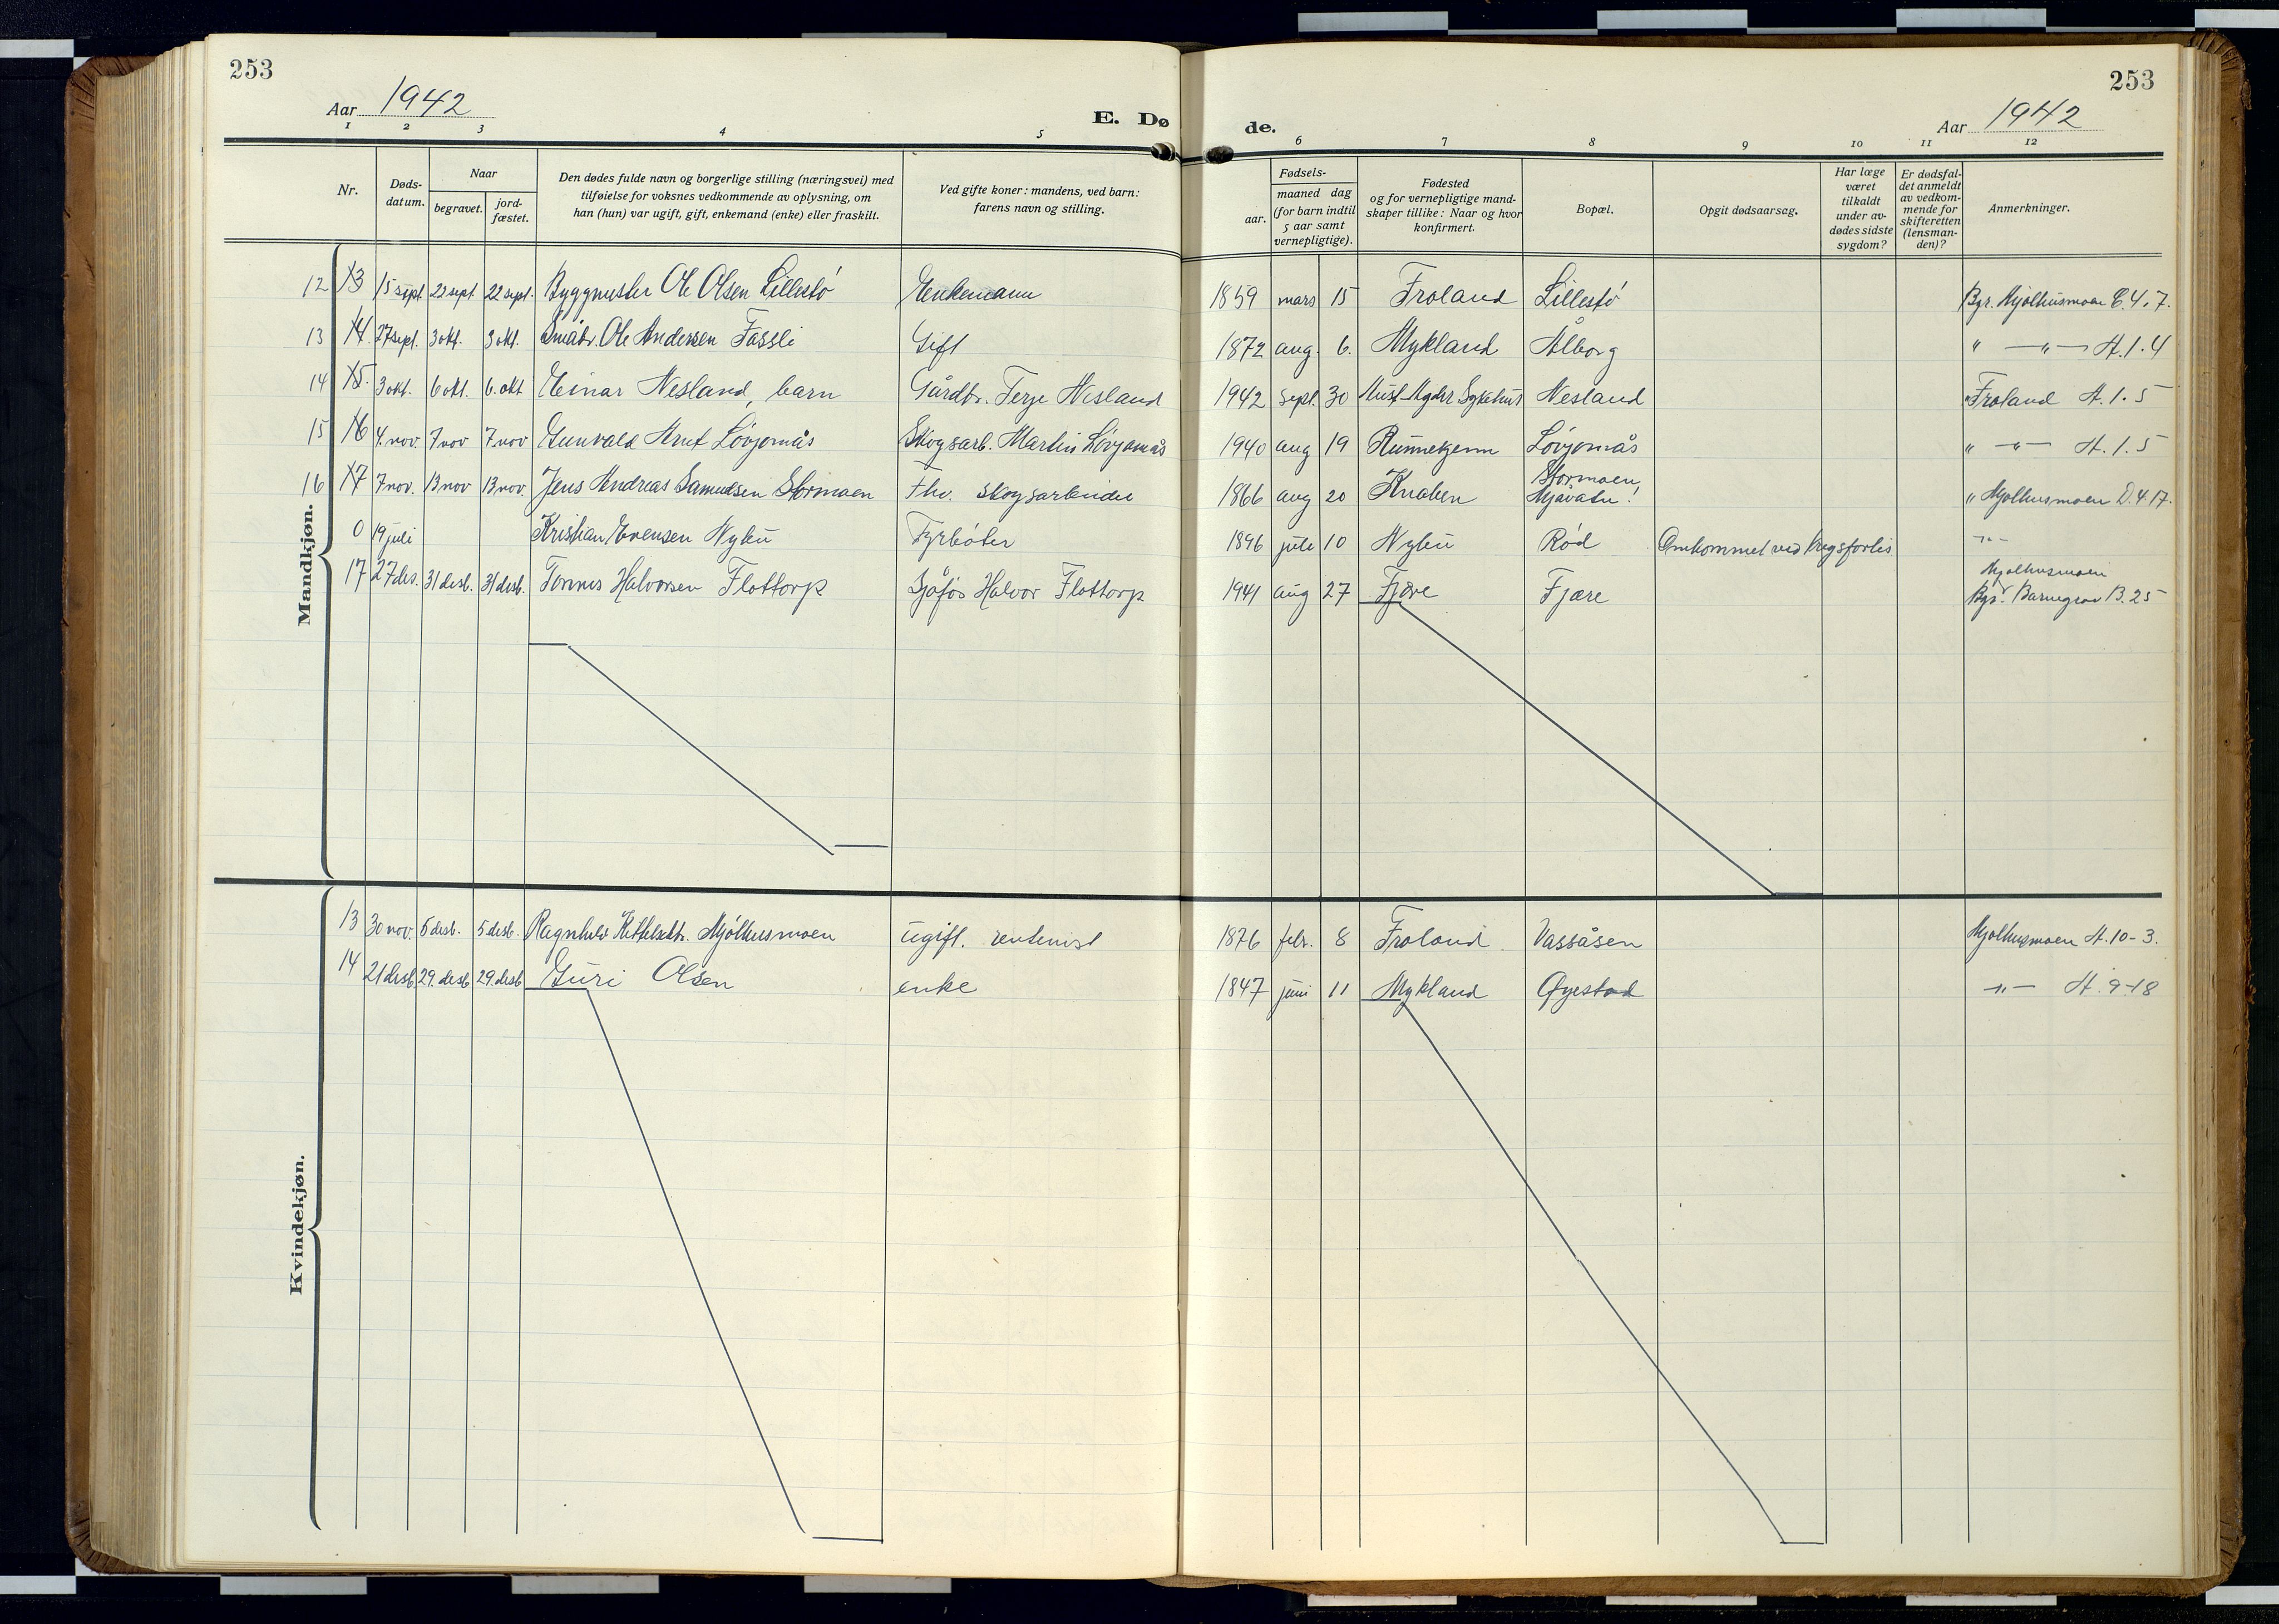 253
253
Aar 1942
E. Døde.
Aar 1942
1 2 3 4 5 6 7 8 9 10 11 12
Nr.
Døds-datum.
Naar
begravet.
jord-fæstet.
Den dødes fulde navn og borgerlige stilling (næringsvei) med tilføielse for voksnes vedkommende av oplysning, om han (hun) var ugift, gift, enkemand (enke) eller fraskilt.
Ved gifte koner: mandens, ved barn: farens navn og stilling.
Fødsels-
aar.
maaned dag
(for barn indtil 5 aar samt vernepligtige).
Fødested og for vernepligtige mandskaper tillike: Naar og hvor konfirmert.
Bopæl.
Opgit dødsaarsag.
Har læge været tilkaldt under avdødes sidste sygdom?
Er dødsfaldet anmeldt av vedkommende for skifteretten (lensmanden)?
Anmerkninger.
Mandkjøn.
12 13 15 sept. 22 sept. 22 sept. Byggmester Ole Olsen Lillestø Enkemann 1859 mars 15 Froland Lillestø Bgr. Mjølhusmoen C.4.7.
13 14 27 sept. 3 okt. 3 okt. Småbr. Ole Andersen Fassli Gift 1872 aug. 6. Mykland Ålborg " — " — A.1.4
14 15. 3 okt. 6 okt. 6. okt Einar Nesland, barn Gårdbr. Terje Nesland 1942 sept. 30 Sykehus Nesland " Froland A.1.5
15 16 4. nov. 7 nov 7 nov Gunvald Arnt Løvjomås Skogsarb. Martin Løvjomås 1940 aug 19 Løvjomås " — " — A.1.5
16 17 7 nov. 13 nov 13 nov. Jens Andreas Samuelsen Stormoen Fhv. skogsarbeider 1866 aug 20 Knaben Stormoen, Mjåvatn! " Mjølhusmoen D.4.17.
0 19 juli Kristian Evensen Nybu Fyrbøter 1896 juli 10 Nybu Rød Omkommet ved krigsforlis — " —
17 27 des. 31 desb. 31 desb. Tønnes Halvorsen Flottorp Sjåfør Halvor Flottorp 1941 aug 27 Fjære Fjære Mjølhusmoen
Bgr. Barnegrav B.25
Kvindekjøn.
13 30 nov. 5 desb. 5 desb. Ragnhild Kittelsdtr. Mjølhusmoen ugift. rentenist 1876 febr. 8 Froland. Vassåsen Mjølhusmoen A.10-3.
14 21 desb 29. desb 29. desb Guri Olsen enke 1847 juni 11 Mykland Øyestad — " — A.9-18